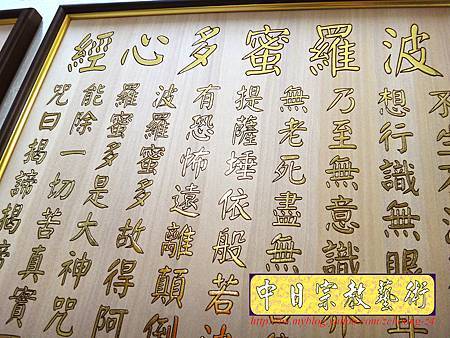 波羅蜜多心經
不生不
想行識無眼
乃至無意識
無老死盡無
提薩埵依般若波
有恐怖遠離顛倒
波羅蜜多故得阿
羅蜜多是大神咒
能除一切苦真實
咒曰揭諦揭諦
中日宗教藝術